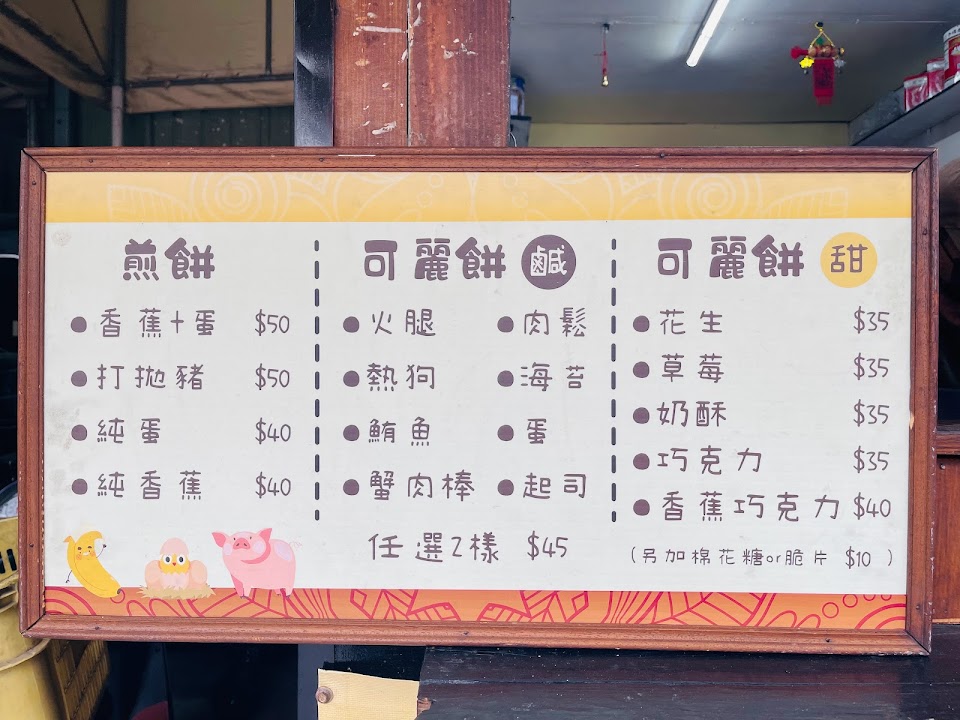 煎餅
●香蕉+蛋 $50
●打拋豬 $50
●純蛋 $40
●純香蕉 $40
可麗餅 鹹
●火腿 ●肉鬆
●熱狗 ●海苔
●鮪魚 ●蛋
●蟹肉棒 ●起司
任選2樣 $45
可麗餅 甜
●花生 $35
●草莓 $35
●奶酥 $35
●巧克力 $35
●香蕉巧克力 $40
(另加棉花糖or脆片 $10 )